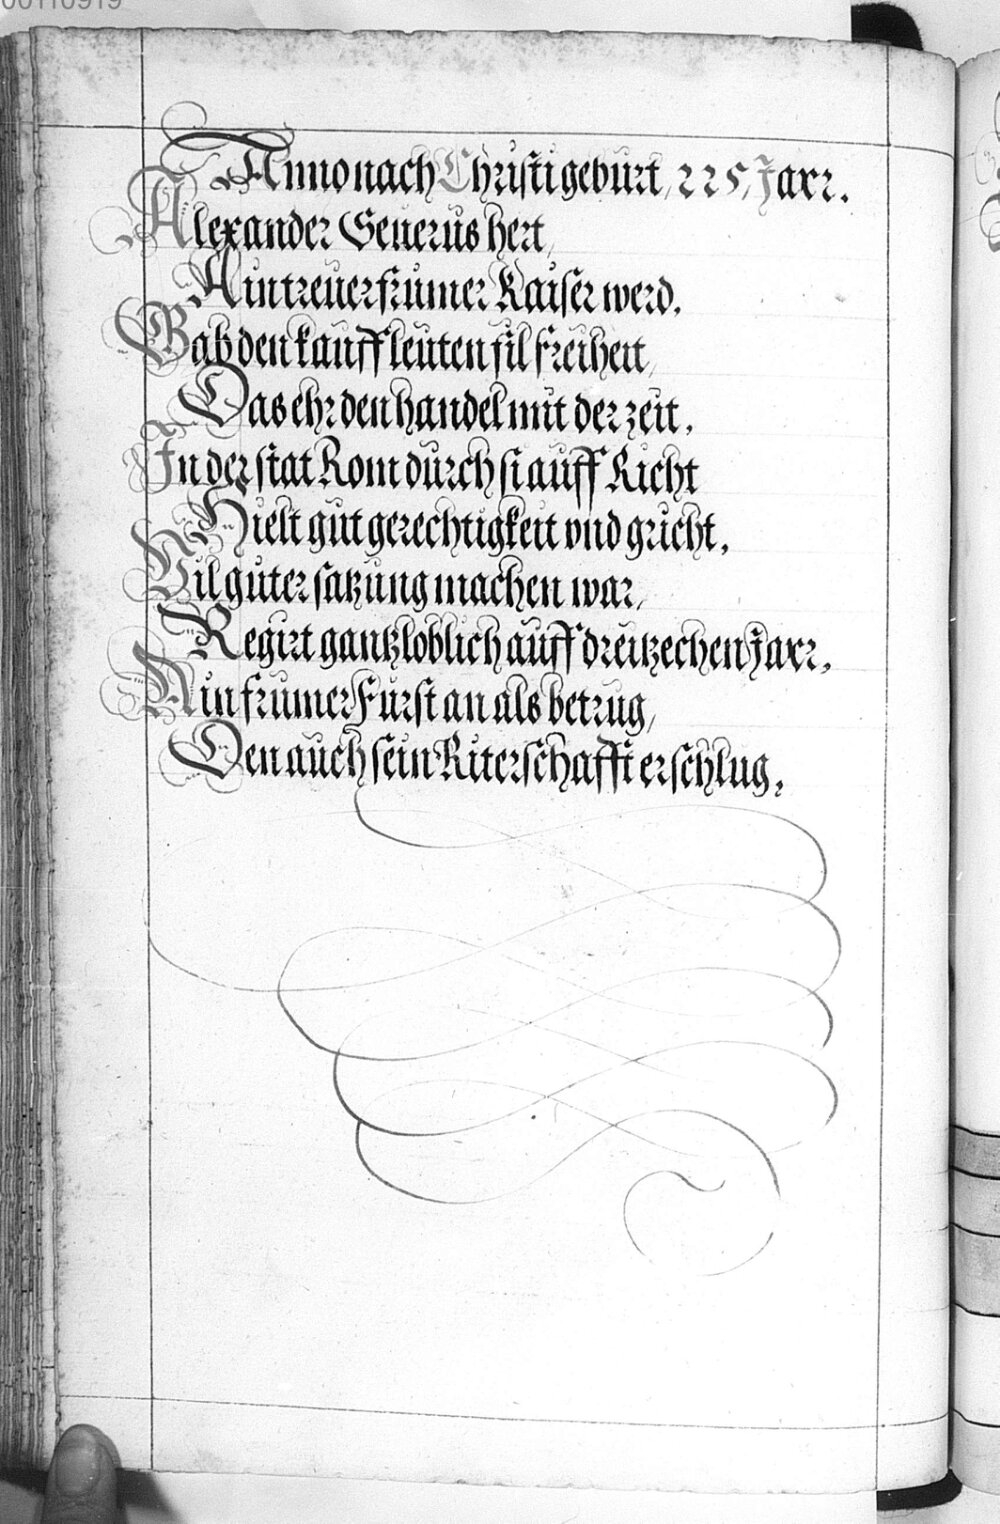 00110919
Anno nach Christi geburt, 225, Jaxr.
Alexander Seuerus hert,
Ain treuer frumer Kaiser werd.
Gab den kauffleuten fil freiheit,
Das ehr den handel mit der zeit.
In der stat Rom durch si auff Richt
Hielt gut gerechtigkeit vnd gricht.
Vil guter satzung machen war,
Regirt gantz loblich auff dreitzechen Jaxr.
Ain frumer Fürst an als betrug,
Den auch sein Riterschafft erschlug.